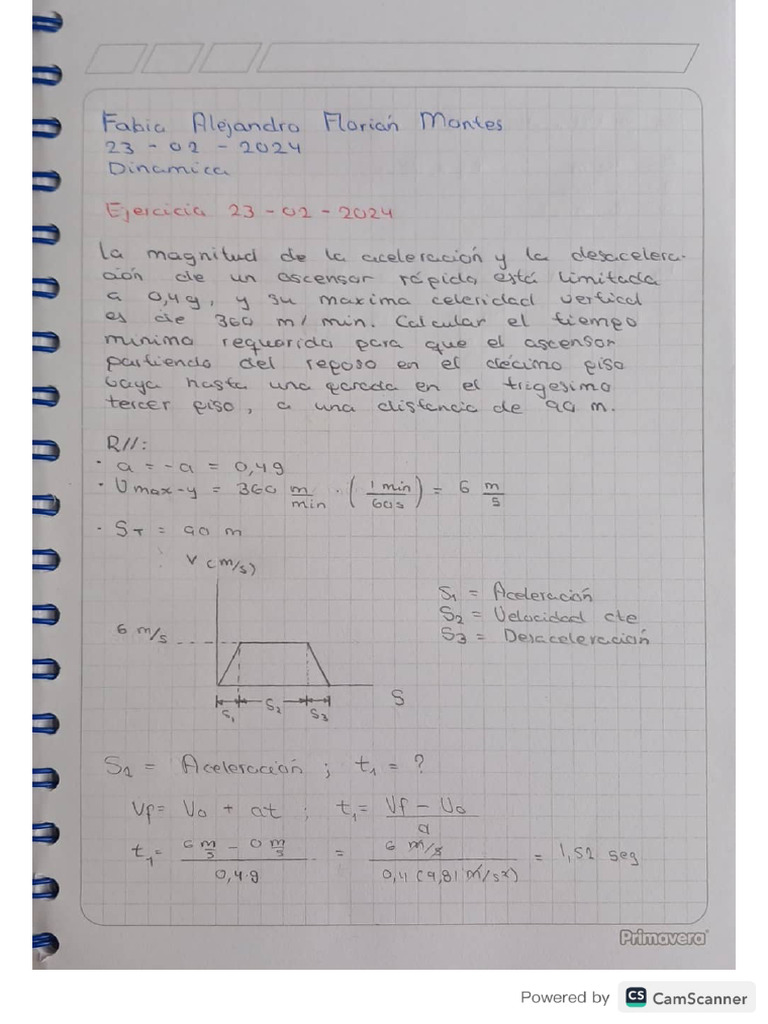 Fabio Alejandro Florián Montes
23 - 02 - 2024
Dinamica
Ejercicio 23 - 02 - 2024
La magnitud de la aceleración y la desacelera-
ación de un ascensor rápido está limitada
a 0,4g, y su maxima celeridad vertical
es de 360 m/min. Calcular el tiempo
minimo requerido para que el ascensor
partiendo del reposo en el décimo piso
baya hasta una parada en el trigesimo
tercer piso, a una distancia de 90 m.
R//:
· a = -a = 0,4g
· Vmax-y = 360 m/min · (1 min/60s) = 6 m/s
· ST = 90 m
V (m/s)
S1 = Aceleración
S2 = Velocidad cte
S3 = Desaceleración
6 m/s
S
S1 S2 S3
S1 = Aceleración ; t1 = ?
Vf = Vo + at ; t1 = Vf - Vo / a
t1 = 6 m/s - 0 m/s / 0,4·g = 6 m/s / 0,4 (9,81 m/s²) = 1,52 seg
Primavera
Powered by CS CamScanner